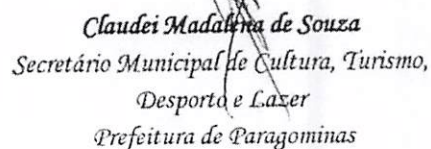 Claudei Madalena de Souza
Secretário Municipal de Cultura, Turismo,
Desporto e Lazer
Prefeitura de Paragominas